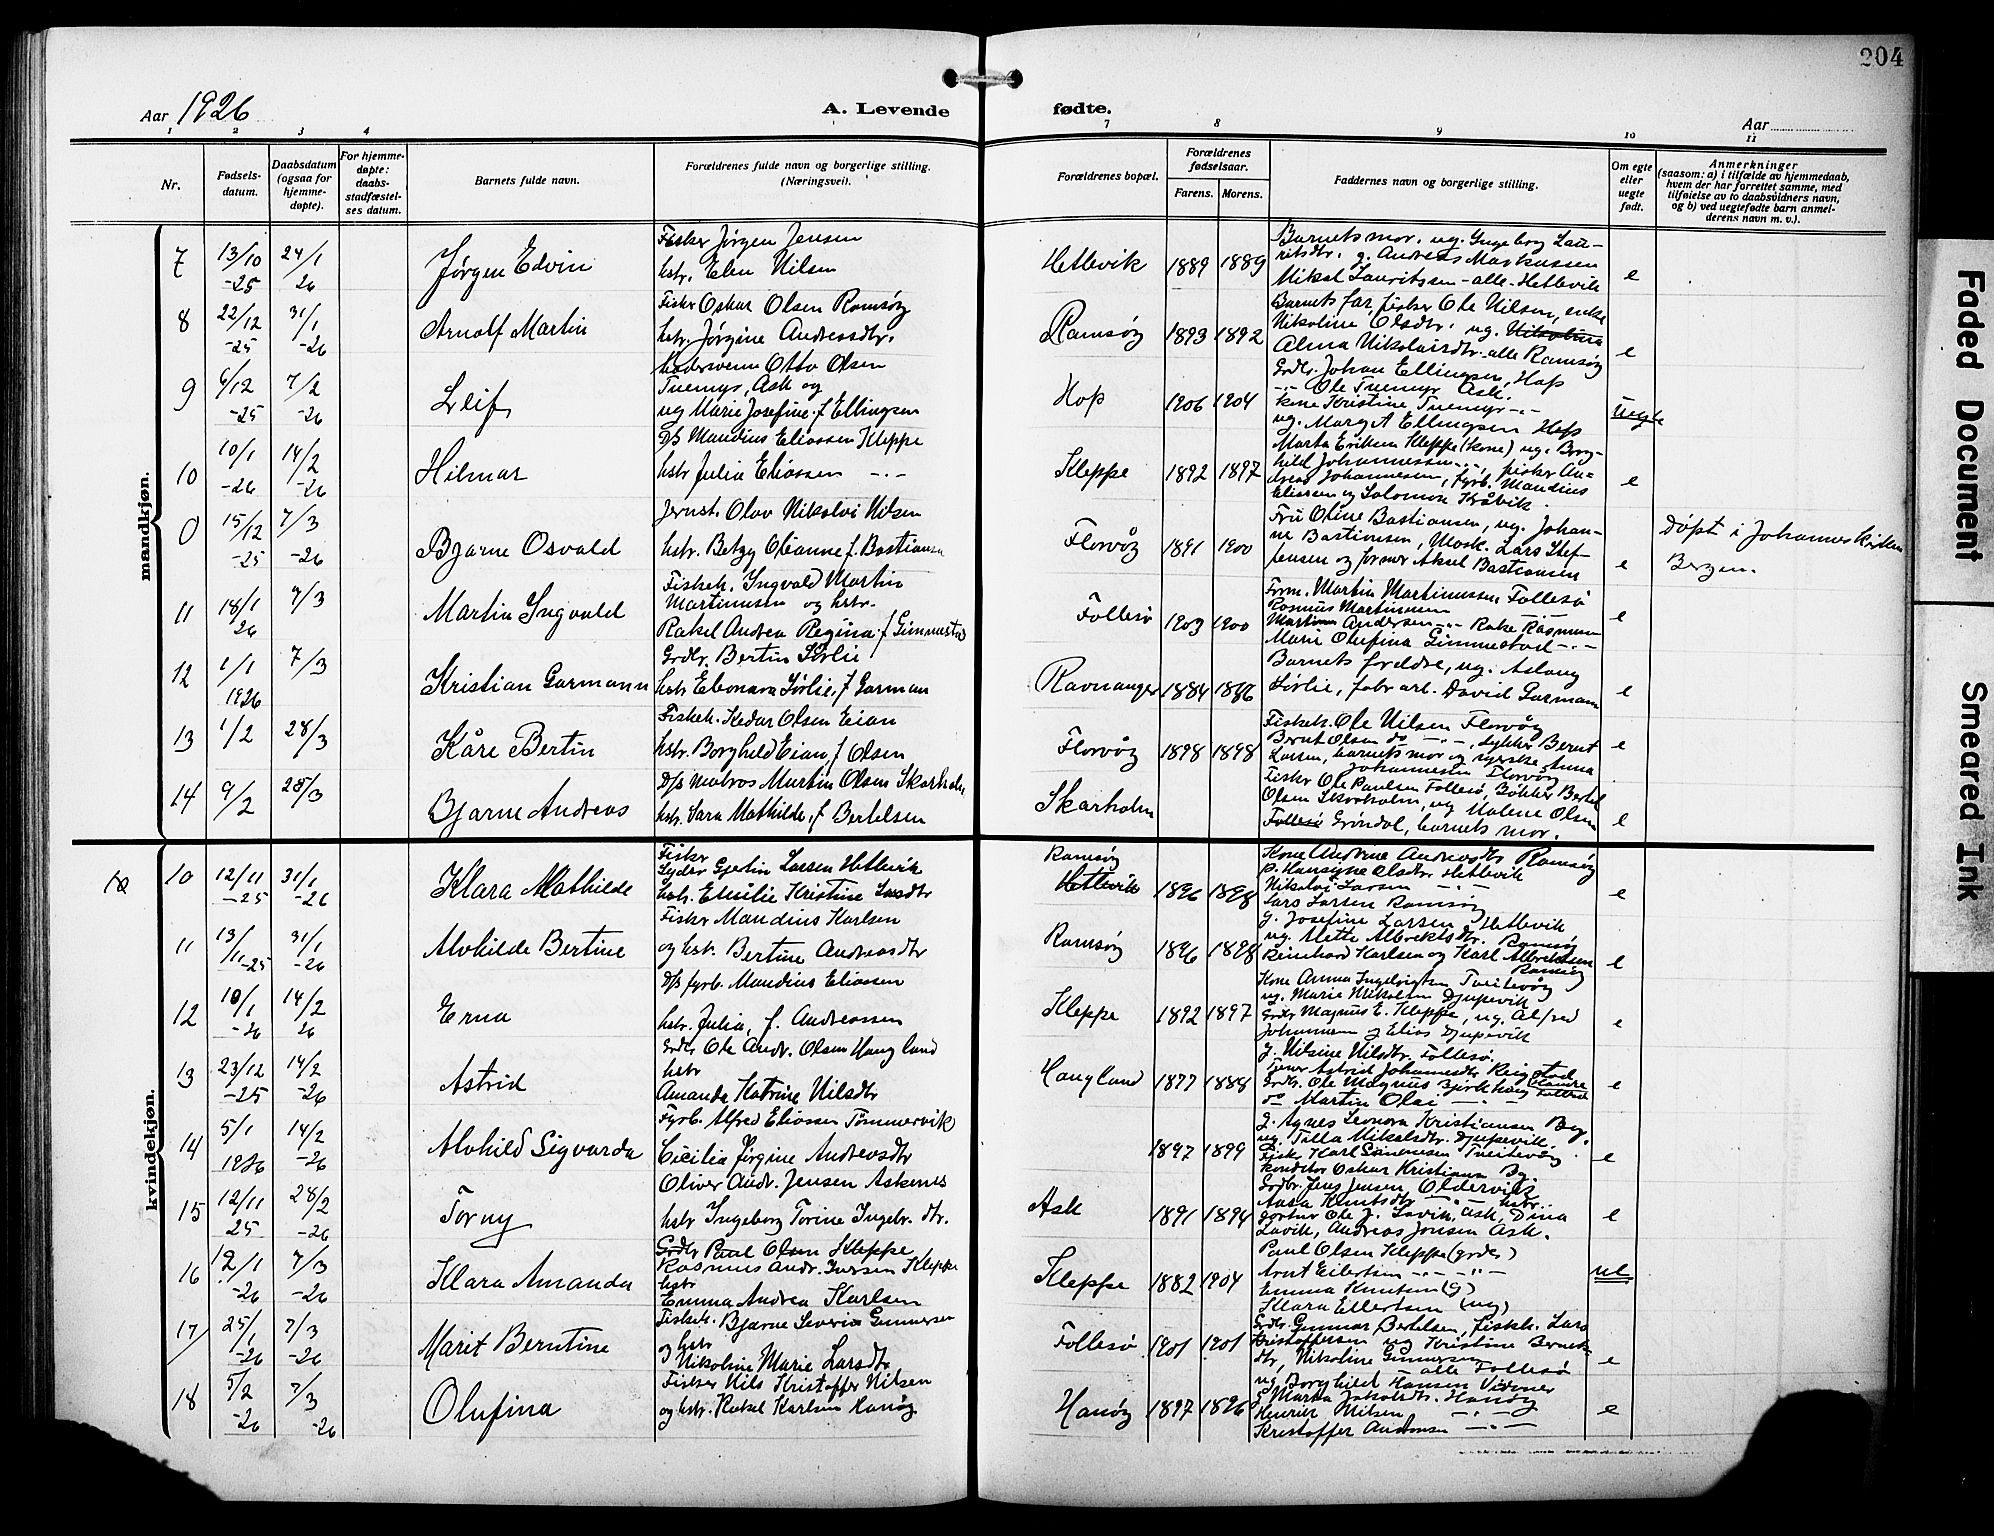 204
Aar 1926
A. Levende fødte.
Aar
1 2 3 4 7 8 9 10 11
Nr.
Fødsels-
datum.
Daabsdatum
(ogsaa for
hjemme-
døpte).
For hjemme-
døpte:
daabs-
stadfæstel-
ses datum.
Barnets fulde navn.
Forældrenes fulde navn og borgerlige stilling.
(Næringsvei).
Forældrenes bopæl.
Forældrenes
fødselsaar.
Farens. Morens.
Faddernes navn og borgerlige stilling.
Om egte
eller
uegte
født.
Anmerkninger
(saasom: a) i tilfælde av hjemmedaab,
hvem der har forrettet samme, med
tilføielse av to daabsvidners navn,
og b) ved uegtefødte barn anmel-
derens navn m. v.).
mandkjøn.
7 13/10 -25 24/1 26 Jørgen Edvin
Fisker Jørgen Jensen
hstr. Elen Nilsen
Hetlevik 1889 1889
Barnets mor, ug. Ingeborg Lau-
ritsdtr. g. Andreas Markussen
Mikal Lauritssen - alle Hetlevik
e
8 22/12 -25 31/1 -26 Arnolf Martin
Fisker Oskar Olsen Ramsøy
hstr. Jørgine Andreasdtr.
Ramsøy 1893 1892
Barnets far, fisker Ole Nilsen, enke
Nikoline Olsdtr. ug. Nikolina
Alma Nikolaisdtr. alle Ramsøy
e
9 6/12 -25 7/2 -26 Leif
Otto Olsen
Tuemyr, Ask og
ug Marie Josefine f Ellingsen
Hop 1906 1904
Grdbr. Johan Ellingsen, Hop
-"- Ole Tuemyr Ask.
kone Kristine Tuemyr -"-
ug. Margit Ellingsen Hop
uegte
10 10/1 -26 14/2 -26 Hilmar
D/s Maudius Eliassen Kleppe
hstr Julia Eliassen -"-
Kleppe 1892 1897
Marta Eriksen Kleppe (kone) ug. Borg-
hild Johannessen -"-, fisker An-
dreas Johannesen, Fyrb. Maudius
Eliassen og Salomon Kråvik.
e
0 15/12 -25 7/3 -26 Bjarne Osvald
Jernst. Olav Nikolai Nilsen
hstr. Betzy Olianne f. Bastiansen
Florvåg 1891 1900
Fru Oline Bastiansen, ug. Johan-
ne Bastiansen, Mask. Lars Stef-
fensen og former Aksel Bastiansen
e
Døpt i Johanneskirken
Bergen.
11 18/1 26 7/3 Martin Ingvald
Fiskeh. Ingvald Martin
Martinussen og hstr.
Rakel Andrea Regina f Gimmestad
Follesø 1903 1900
Form. Martin Martinussen Follesø
Rasmus Martinussen
Andersen -"- Rake Rasmussen
Marie Olufina Gimmestad -"-
e
12 1/1 1926 7/3 Kristian Garmann
Grdbr. Bertin Sørlie
hstr Eleonora Sørlie, f Garman
Ravnanger 1884 1886
Barnets foreldre, ug. Aslaug
Sørlie, fabr. arb. David Garmann
e
13 1/2 28/3 Kåre Bertin
Fiskeh. Kedar Olsen Eian
hstr. Borghild Eian, f Olsen
Florvåg 1898 1898
Fiskeh. Ole Nilsen Florvåg
Bernt Olsen do -"-, lykker Bernt
Larsen, barnets mor og syerske Anna
Johannesen Florvåg
e
14 9/2 28/3 Bjarne Andreas
D/s Matros Martin Olsen Skarholm
hstr. Sara Mathilde, f Bertelsen
Skarholm
Fisker Ole Paulsen Follesø, Bøkker Bertel
Olsen Skarholm, ug Malene Olsen
Follesø Grøndal, barnets mor.
e
kvindekjøn.
10 10 12/11 -25 31/1 -26 Klara Mathilde
Fisker
Syder Gjertin Larsen Hetlevik
hstr. Emilie Kristine Larsdtr
Ramsøy
Hetlevik 1896 1898
Kone Andrine Andreasdtr Ramsøy
p. Hansine Olsdtr Hetlevik
Nikolai Larsen -"-
Lars Larsen Ramsøy
e
11 13/11 -25 31/1 -26 Alvhilde Bertine
Fisker Maudius Karlsen
og hstr. Bertine Andreasdtr
Ramsøy 1896 1898
g. Josefine Larsen Hetlevik
ug. Mette Albrektsdtr. Ramsøy
Reinhard Karlsen og Karl Albrektsen
Ramsøy
e
12 10/1 -26 14/2 26 Erna
D/s fyrb. Maudius Eliassen
hstr. Julia, f. Andreassen
Kleppe 1892 1897
Kone Anna Ingebrigtsen Tveitevåg
ug. Marie Nikolsen Djupevik
Grdbr Magnus E. Kleppe, ug. Alfred
Johannesen og Elias Djupevik
e
13 23/12 -25 14/2 -26 Astrid
Grdbr Ole Andr. Olsen Haugland
hstr
Amanda Katrine Nilsdtr
Haugland 1877 1884
g. Nilsine Nilsdtr. Follesø.
Tjener Astrid Johannesdtr Reigstad
Grdbr. Ole Magnus Bjørkhaug
do Martin Olai -"-
e
14 5/1 1926 14/2 -26 Alvhild Sigvarda
Fyrb. Alfred Eliassen Tømmervik
Cicilia Jørgine Andreasdtr
1897 1899
g. Agnes Leonora Kristiansen Bg.
ug. Tilla Mikalsdtr. Djupevik.
Fisk. Karl Simonsen Tveitevåg
konditor Oskar Kristiansen Bg.
e
15 12/11 25 28/2 -26 Torny
Oliver Andr. Jensen Askenes
hstr Ingeborg Torine Ingebr. dtr.
Ask 1891 1894
Grdbr. Jens Jensen Oldervik
Aasa Knutsdtr -"- hstr.
Gartner Ole J. Lavik, Ask, Dina
Lavik, Andreas Jensen Ask.
e
16 12/1 -26 7/3 -26 Klara Amanda
Grdbr Paul Olsen Kleppe
Rasmus Andr. Iversen Kleppe
hstr
Emma Andrea Karlsen
Kleppe 1882 1904
Paul Olsen Kleppe (grdbr)
Arnt Eilertsen -"- -"-
Emma Knutsen (g)
Klara Eilertsen (ug)
ue
17 25/1 -26 7/3 -26 Marit Berntine
Fiskeh. Bjarne Severin Gunnersen
og hstr
Nikoline Marie Larsdtr
Follesø 1901 1901
Grdbr. Gunnar Bertelsen, Fiskh. Lars
Kristoffersen ug Kristine Bernts-
dtr, Nikoline Gunnersen
alle Follesø
e
18 5/2 -26 7/3 -26 Olufina
Fisker Nils Kristoffer Nilsen
og hstr. Rakel Karlsen Hanøy
Hanøy 1897 1896
ug Borghild Hansen Vidnes
g Marta Jakobsdtr. Hanøy
Henrik Nilsen -"-
Kristoffer Andersen -"-
e
Faded Document
Smeared Ink